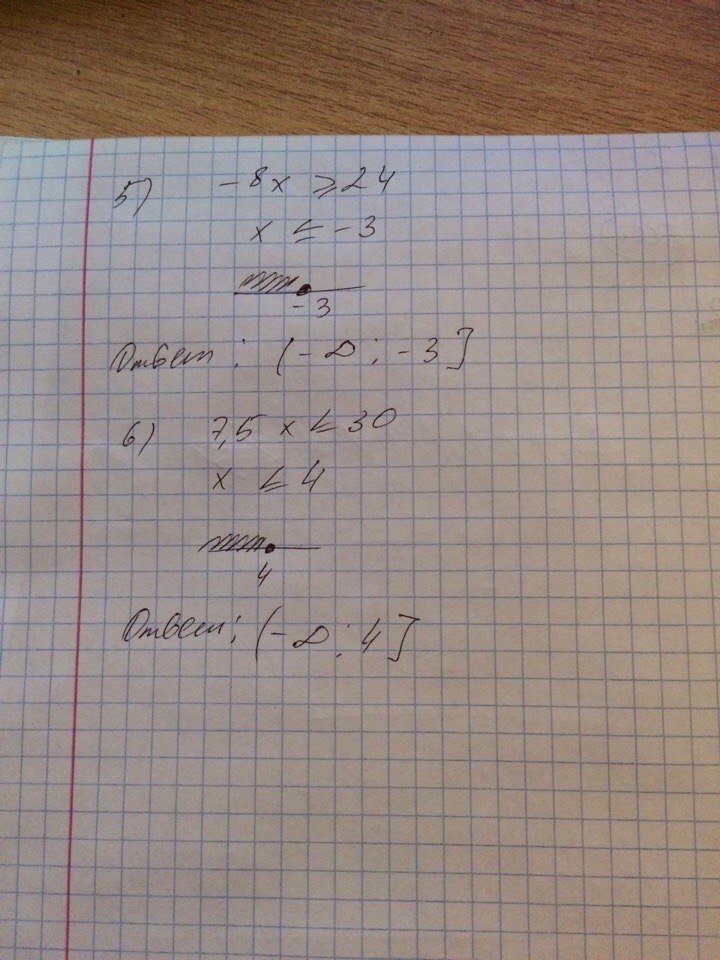 5) -8x ⩾ 24
x ≤ -3
-3
Ответ: (-∞; -3]
6) 7,5 x ≤ 30
x ≤ 4
4
Ответ: (-∞; 4]